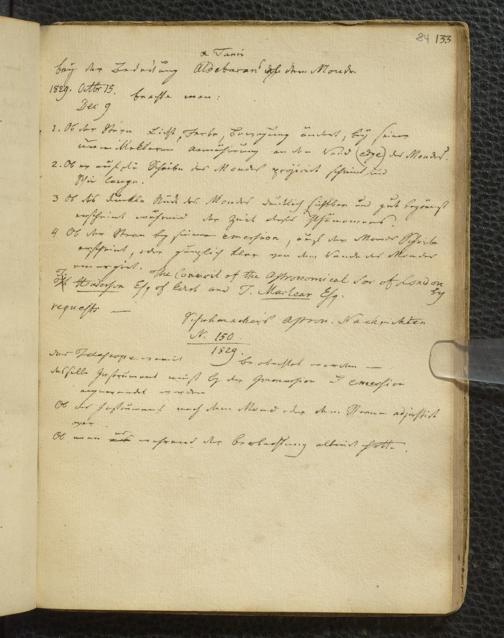 84 133
α Tauri
bey der Bedeckung Aldebarans durch dem Monde
1829. Octbr 15. beachte man:
Dec 9
1. Ob der Stern Licht, Farbe, Bewegung ändert, bey seiner
unmittelbaren Annäherung an den Rand (edge) des Mondes
2. Ob er auf die Scheibe des Mondes projicirt scheint und
wie lange.
3 Ob der dunkle Rand des Mondes deutlich sichtbar und gut begränzt
erscheint während der Zeit dieses Phänomens.
4 Ob der Stern bey seiner emersion, auf der Mondes Scheibe
erscheint, oder gänzlich klar von dem Rande des Mondes
emergirt. The Council of the Astronomical Soc of London
Esq of and T. Maclear Esq. by
requests —
Schuhmachers Astron. Nachrichten
N. 150.
1829.
das Telescope womit beobachtet worden —
dasselbe Instrument muß bey der Immersion & emersion
angewendet werden
Ob das Instrument nach dem Mond oder dem Sterne adjustirt
war.
Ob man während der Beobachtung